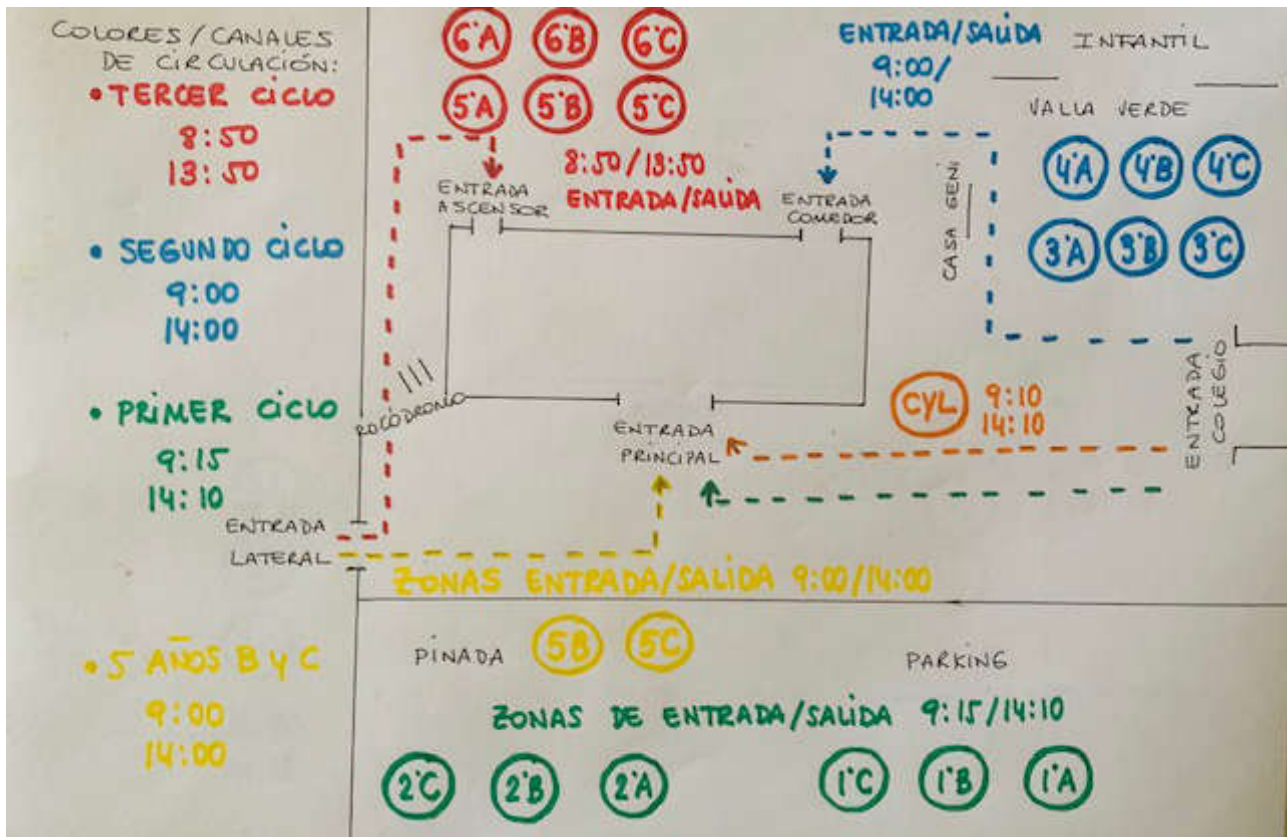 COLORES/CANALES
DE CIRCULACIÓN:
• TERCER CICLO
8:50
13:50
• SEGUNDO CICLO
9:00
14:00
• PRIMER CICLO
9:15
14:10
ENTRADA
LATERAL
• 5 AÑOS B Y C
9:00
14:00
6ºA 6ºB 6ºC
5ºA 5ºB 5ºC
8:50/13:50
ENTRADA/SALIDA
ENTRADA
ASCENSOR
ENTRADA/SALIDA
9:00/
14:00
ENTRADA
COMEDOR
INFANTIL
VALLA VERDE
4ºA 4ºB 4ºC
3ºA 3ºB 3ºC
CASA GENI
ROCÓDROMO
ENTRADA
PRINCIPAL
CYL 9:10
14:10
ENTRADA
COLEGIO
ZONAS ENTRADA/SALIDA 9:00/14:00
PINADA 5B 5C
PARKING
ZONAS DE ENTRADA/SALIDA 9:15/14:10
2ºC 2ºB 2ºA 1ºC 1ºB 1ºA